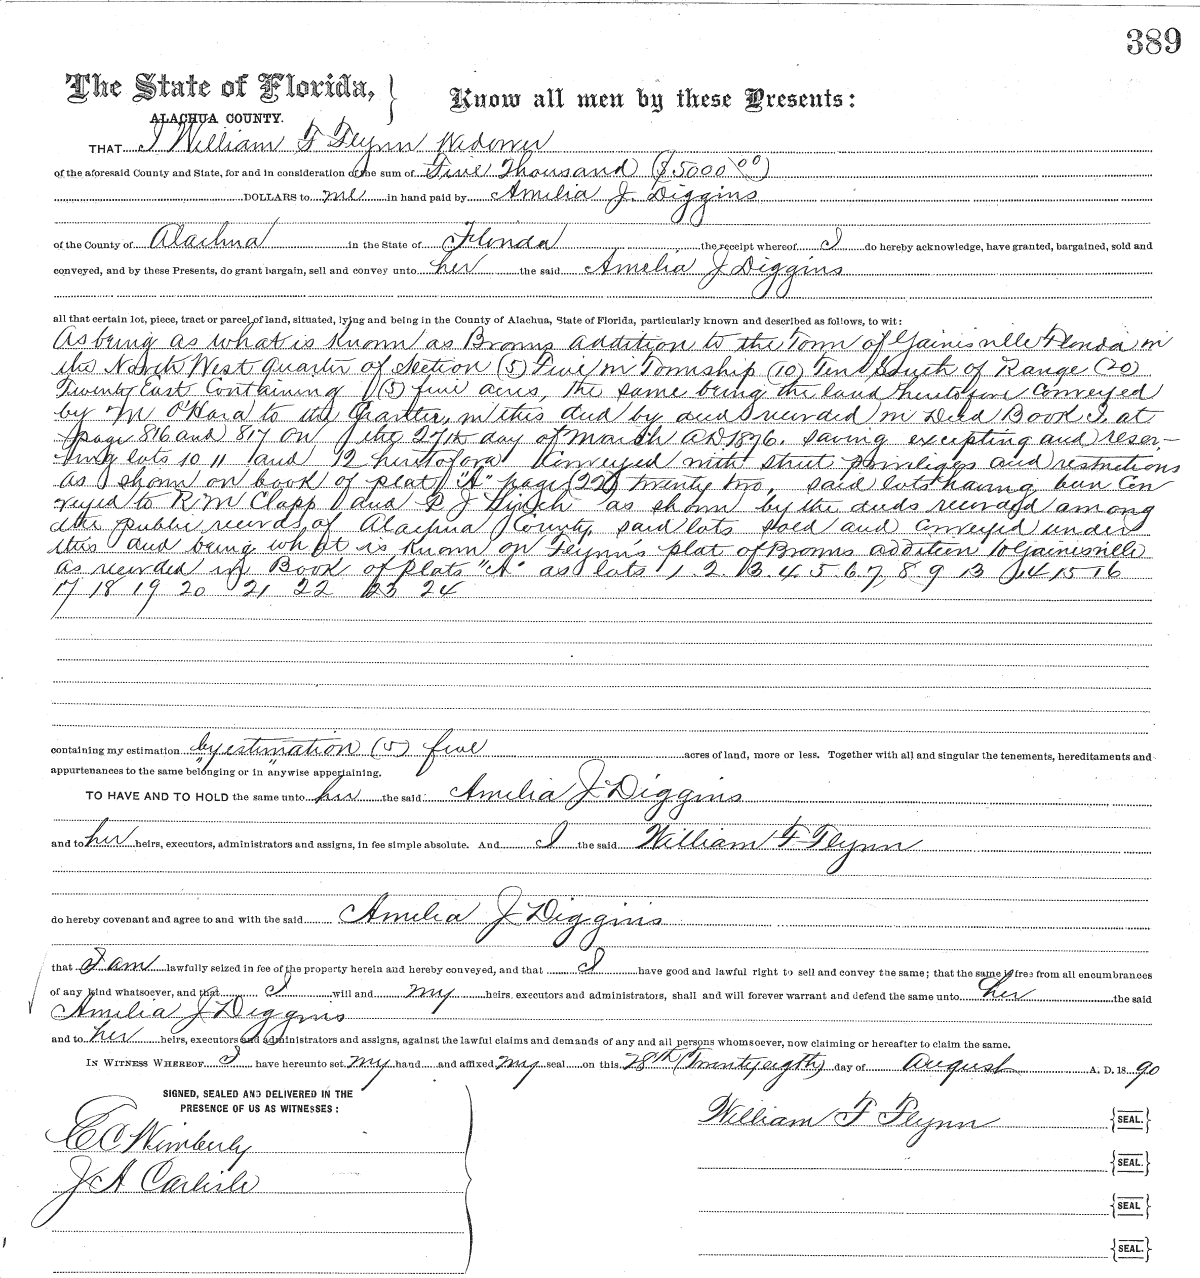 389
The State of Florida, Know all men by these Presents:
ALACHUA COUNTY.
THAT I William F Flynn Widower
of the aforesaid County and State, for and in consideration of the sum of Five Thousand ($5000 00)
DOLLARS to me in hand paid by Amelia J. Diggins
of the County of Alachua in the State of Florida the receipt whereof I do hereby acknowledge, have granted, bargained, sold and
conveyed, and by these Presents, do grant bargain, sell and convey unto her the said Amelia J Diggins
all that certain lot, piece, tract or parcel of land, situated, lying and being in the County of Alachua, State of Florida, particularly known and described as follows, to wit:
As being as what is Known as Browns addition to the Town of Gainesville Florida in
the North West Quarter of Section (5) Five in Township (10) Ten South of Range (20)
Twenty East Containing (5) five acres, the same being the land heretofore conveyed
by M O'Hara to the Grantor, in this deed by deed recorded in Deed Book I, at
page 816 and 817 on the 27th day of March AD 1876. Saving excepting and reser-
ving lots 10 11 and 12 heretofore Conveyed with street priviliges and restrictions
as shown on book of plat "A" page (22) twenty two, said lots having been Con
veyed to R M Clapp and P J as shown by the deeds record among
the public records of Alachua County, said lots sold and conveyed under
this deed being what is Known on Flynn's plat of Browns addition to Gainesville
as recorded in Book of Plats "A" as lots 1. 2. 3. 4. 5. 6. 7 8 9 13 14 15 16
17 18 19 20 21 22 23 24
containing my estimation by estimation (5) five acres of land, more or less. Together with all and singular the tenements, hereditaments and
appurtenances to the same belonging or in anywise appertaining.
TO HAVE AND TO HOLD the same unto her the said Amelia J Diggins
and to her heirs, executors, administrators and assigns, in fee simple absolute. And I the said William F Flynn
do hereby covenant and agree to and with the said Amelia J Diggins
that I am lawfully seized in fee of the property herein and hereby conveyed, and that I have good and lawful right to sell and convey the same; that the same is free from all encumbrances
of any kind whatsoever, and that I will and my heirs, executors and administrators, shall and will forever warrant and defend the same unto her the said
Amelia J Diggins
and to her heirs, executors and administrators and assigns, against the lawful claims and demands of any and all persons whomsoever, now claiming or hereafter to claim the same.
IN WITNESS WHEREOF I have hereunto set my hand and affixed my seal on this 28th (Twenty eigth) day of August A. D. 18 90
SIGNED, SEALED AND DELIVERED IN THE
PRESENCE OF US AS WITNESSES:
William F Flynn SEAL.
E C Wimberly
SEAL.
J A Carlisle
SEAL
SEAL.